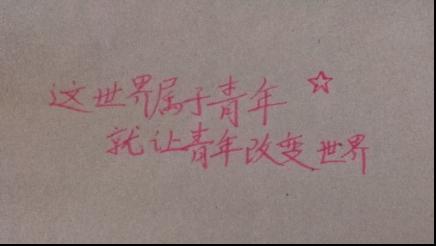 这世界属于青年☆
就让青年改变世界